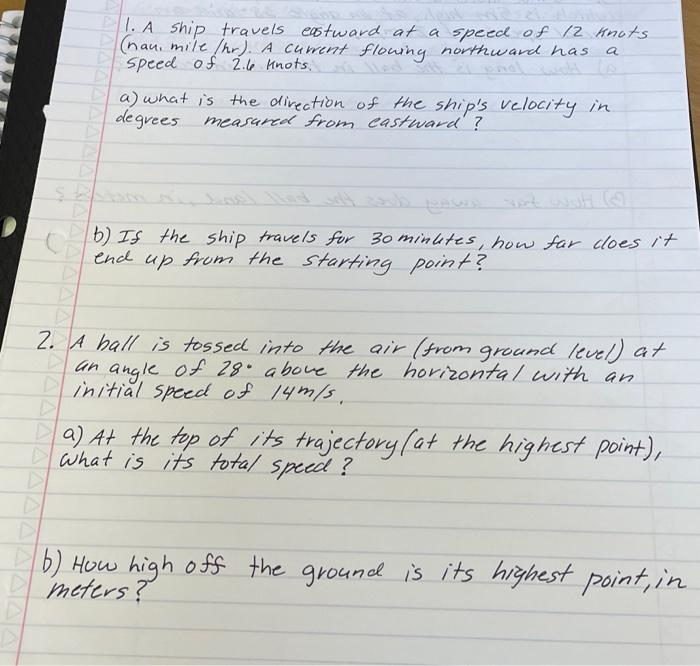 1. A ship travels eastward at a speed of 12 knots
(nau. mile/hr). A current flowing northward has a
speed of 2.6 knots.
a) what is the direction of the ship's velocity in
degrees measured from eastward?
b) If the ship travels for 30 minutes, how far does it
end up from the starting point?
2. A ball is tossed into the air (from ground level) at
an angle of 28° above the horizontal with an
initial speed of 14m/s.
a) At the top of its trajectory (at the highest point),
what is its total speed?
b) How high off the ground is its highest point, in
meters?